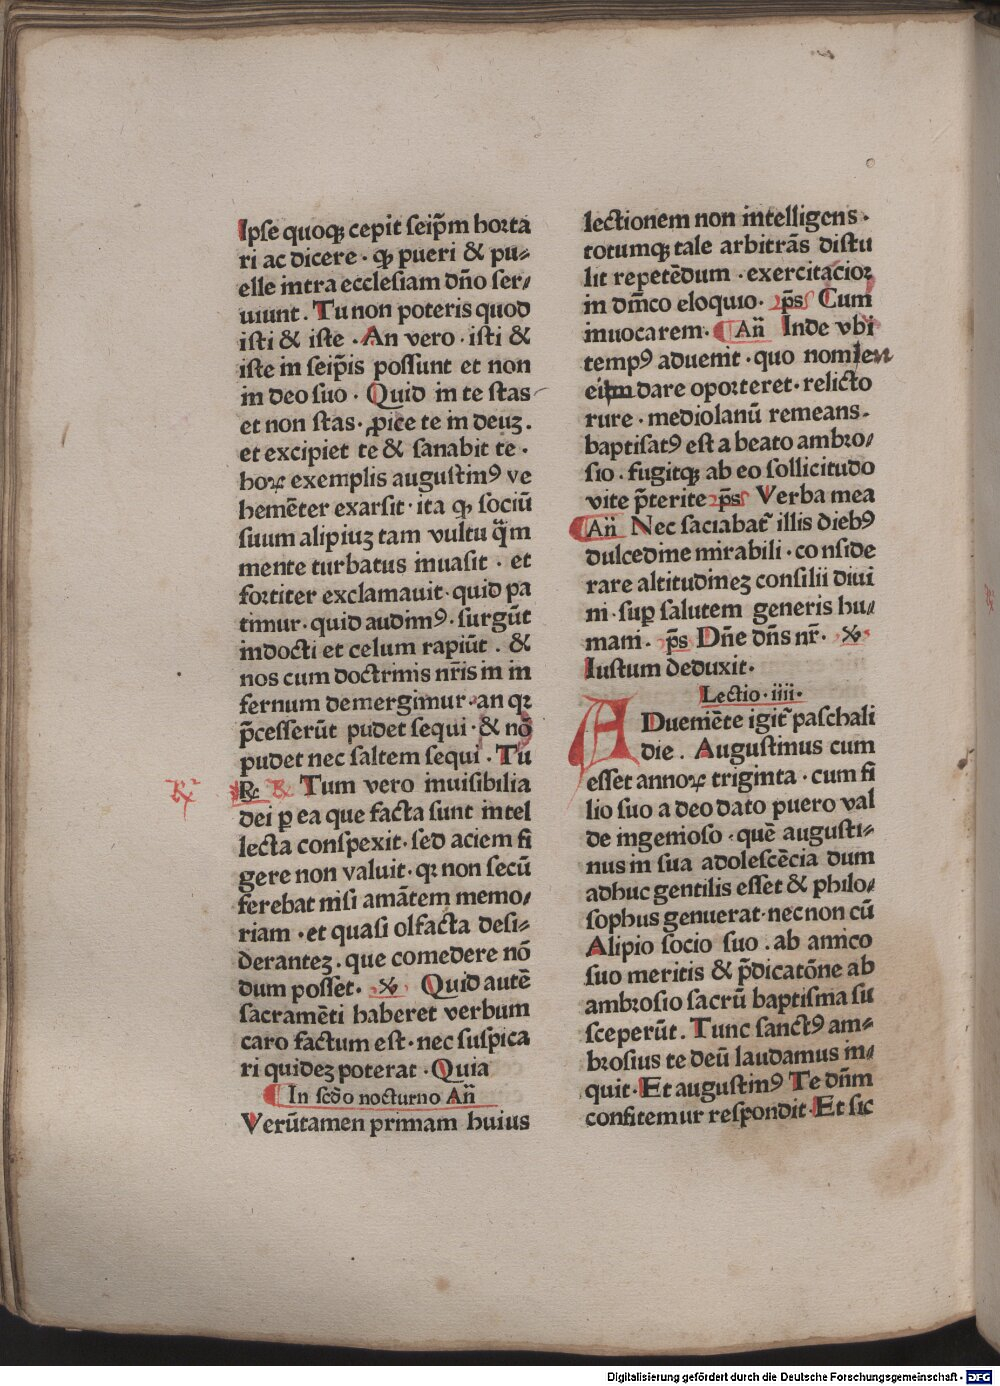 Ipse quoqꝫ cepit seip̄m horta
ri ac dicere · qꝫ pueri & pu⸗
elle intra ecclesiam dn̄o ser⸗
uiunt . Tu non poteris quod
isti & iste · An vero · isti &
iste in seip̄is possunt et non
in deo suo · Quid in te stas
et non stas · ꝓice te in deuꝫ .
et excipiet te & sanabit te ·
hoꝝ exemplis augustinꝰ ve
hemēter exarsit · ita qꝫ sociū
suum alipiuꝫ tam vultu q̄m
mente turbatus inuasit · et
fortiter exclamauit · quid pa
timur · quid audimꝰ · surgūt
indocti et celum rapiūt . &
nos cum doctrinis nr̄is in in
fernum demergimur · an qꝛ
p̄cesserūt pudet sequi · & nō
pudet nec saltem sequi . Tu
℟ Tum vero inuisibilia
dei ꝑ ea que facta sunt intel
lecta conspexit · sed aciem fi
gere non valuit · qꝛ non secū
ferebat nisi amātem memo⸗
riam · et quasi olfacta desi⸗
deranteꝫ . que comedere nō
dum posset · ℣ Quid autē
sacramēti haberet verbum
caro factum est · nec suspica
ri quideꝫ poterat · Quia
In scd̄o nocturno An̄
Verūtamen primam huius
lectionem non intelligens ·
totumqꝫ tale arbitrās distu
lit repetēdum · exercitacior
in dm̄co eloquio · p̄s Cum
inuocarem · An̄ Inde vbi
tempꝰ aduenit · quo nomen
eum dare oporteret · relicto
rure · mediolanū remeans ·
baptisatꝰ est a beato ambro⸗
sio . fugitqꝫ ab eo sollicitudo
vite p̄terite p̄s Verba mea
An̄ Nec saciabat᷑ illis diebꝰ
dulcedine mirabili · conside
rare altitudineꝫ consilii diui
ni · suꝑ salutem generis hu⸗
mani · p̄s Dn̄e dn̄s nr̄ · ℣
Iustum deduxit ·
Lectio · iiii ·
ADueniēte igit᷑ paschali
die . Augustinus cum
esset annoꝝ triginta · cum fi
lio suo a deo dato puero val
de ingenioso · quē augusti⸗
nus in sua adolescēcia dum
adhuc gentilis esset & philo⸗
sophus genuerat · nec non cū
Alipio socio suo . ab amico
suo meritis & p̄dicatōne ab
ambrosio sacrū baptisma su
sceperūt . Tunc sanctꝰ am⸗
brosius te deū laudamus in⸗
quit · Et augustinꝰ Te dn̄m
confitemur respondit · Et sic
Digitalisierung gefördert durch die Deutsche Forschungsgemeinschaft - DFG